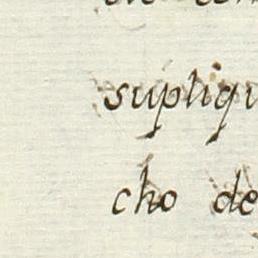 supliqu
cho de